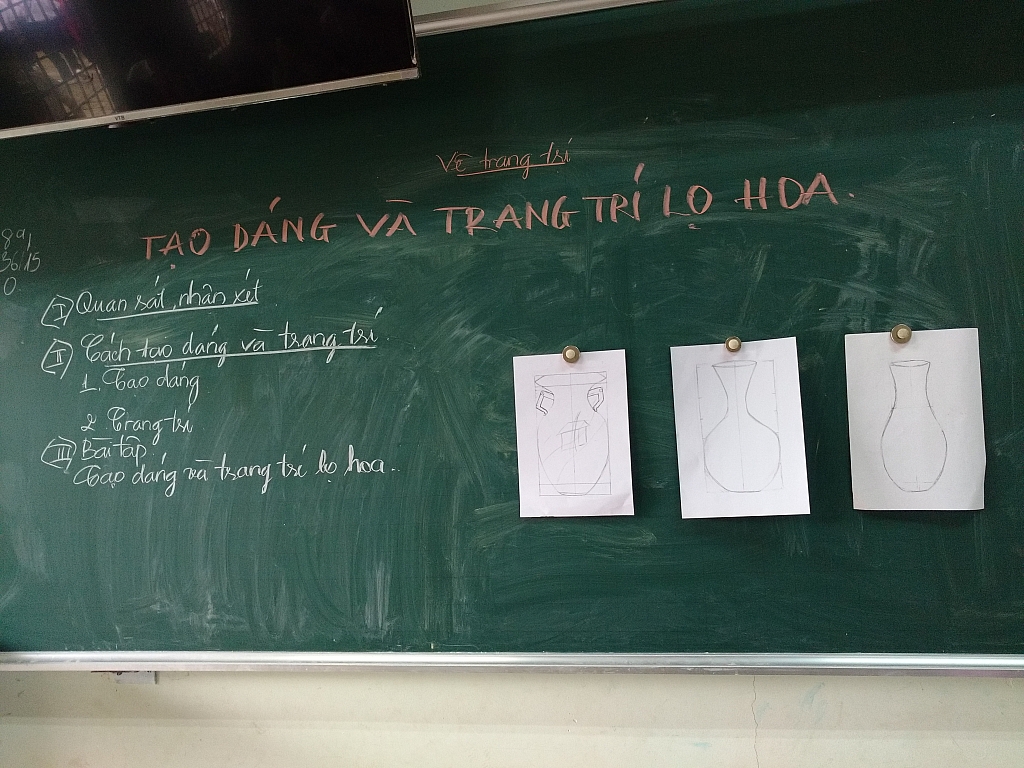 Vẽ trang trí
TẠO DÁNG VÀ TRANG TRÍ LỌ HOA.
8a1
36/15
0
I Quan sát, nhân xét
II Cách tạo dáng và trang trí
1. Tạo dáng
2. Trang trí
III Bài tập.
Tạo dáng và trang trí lọ hoa..
VTB